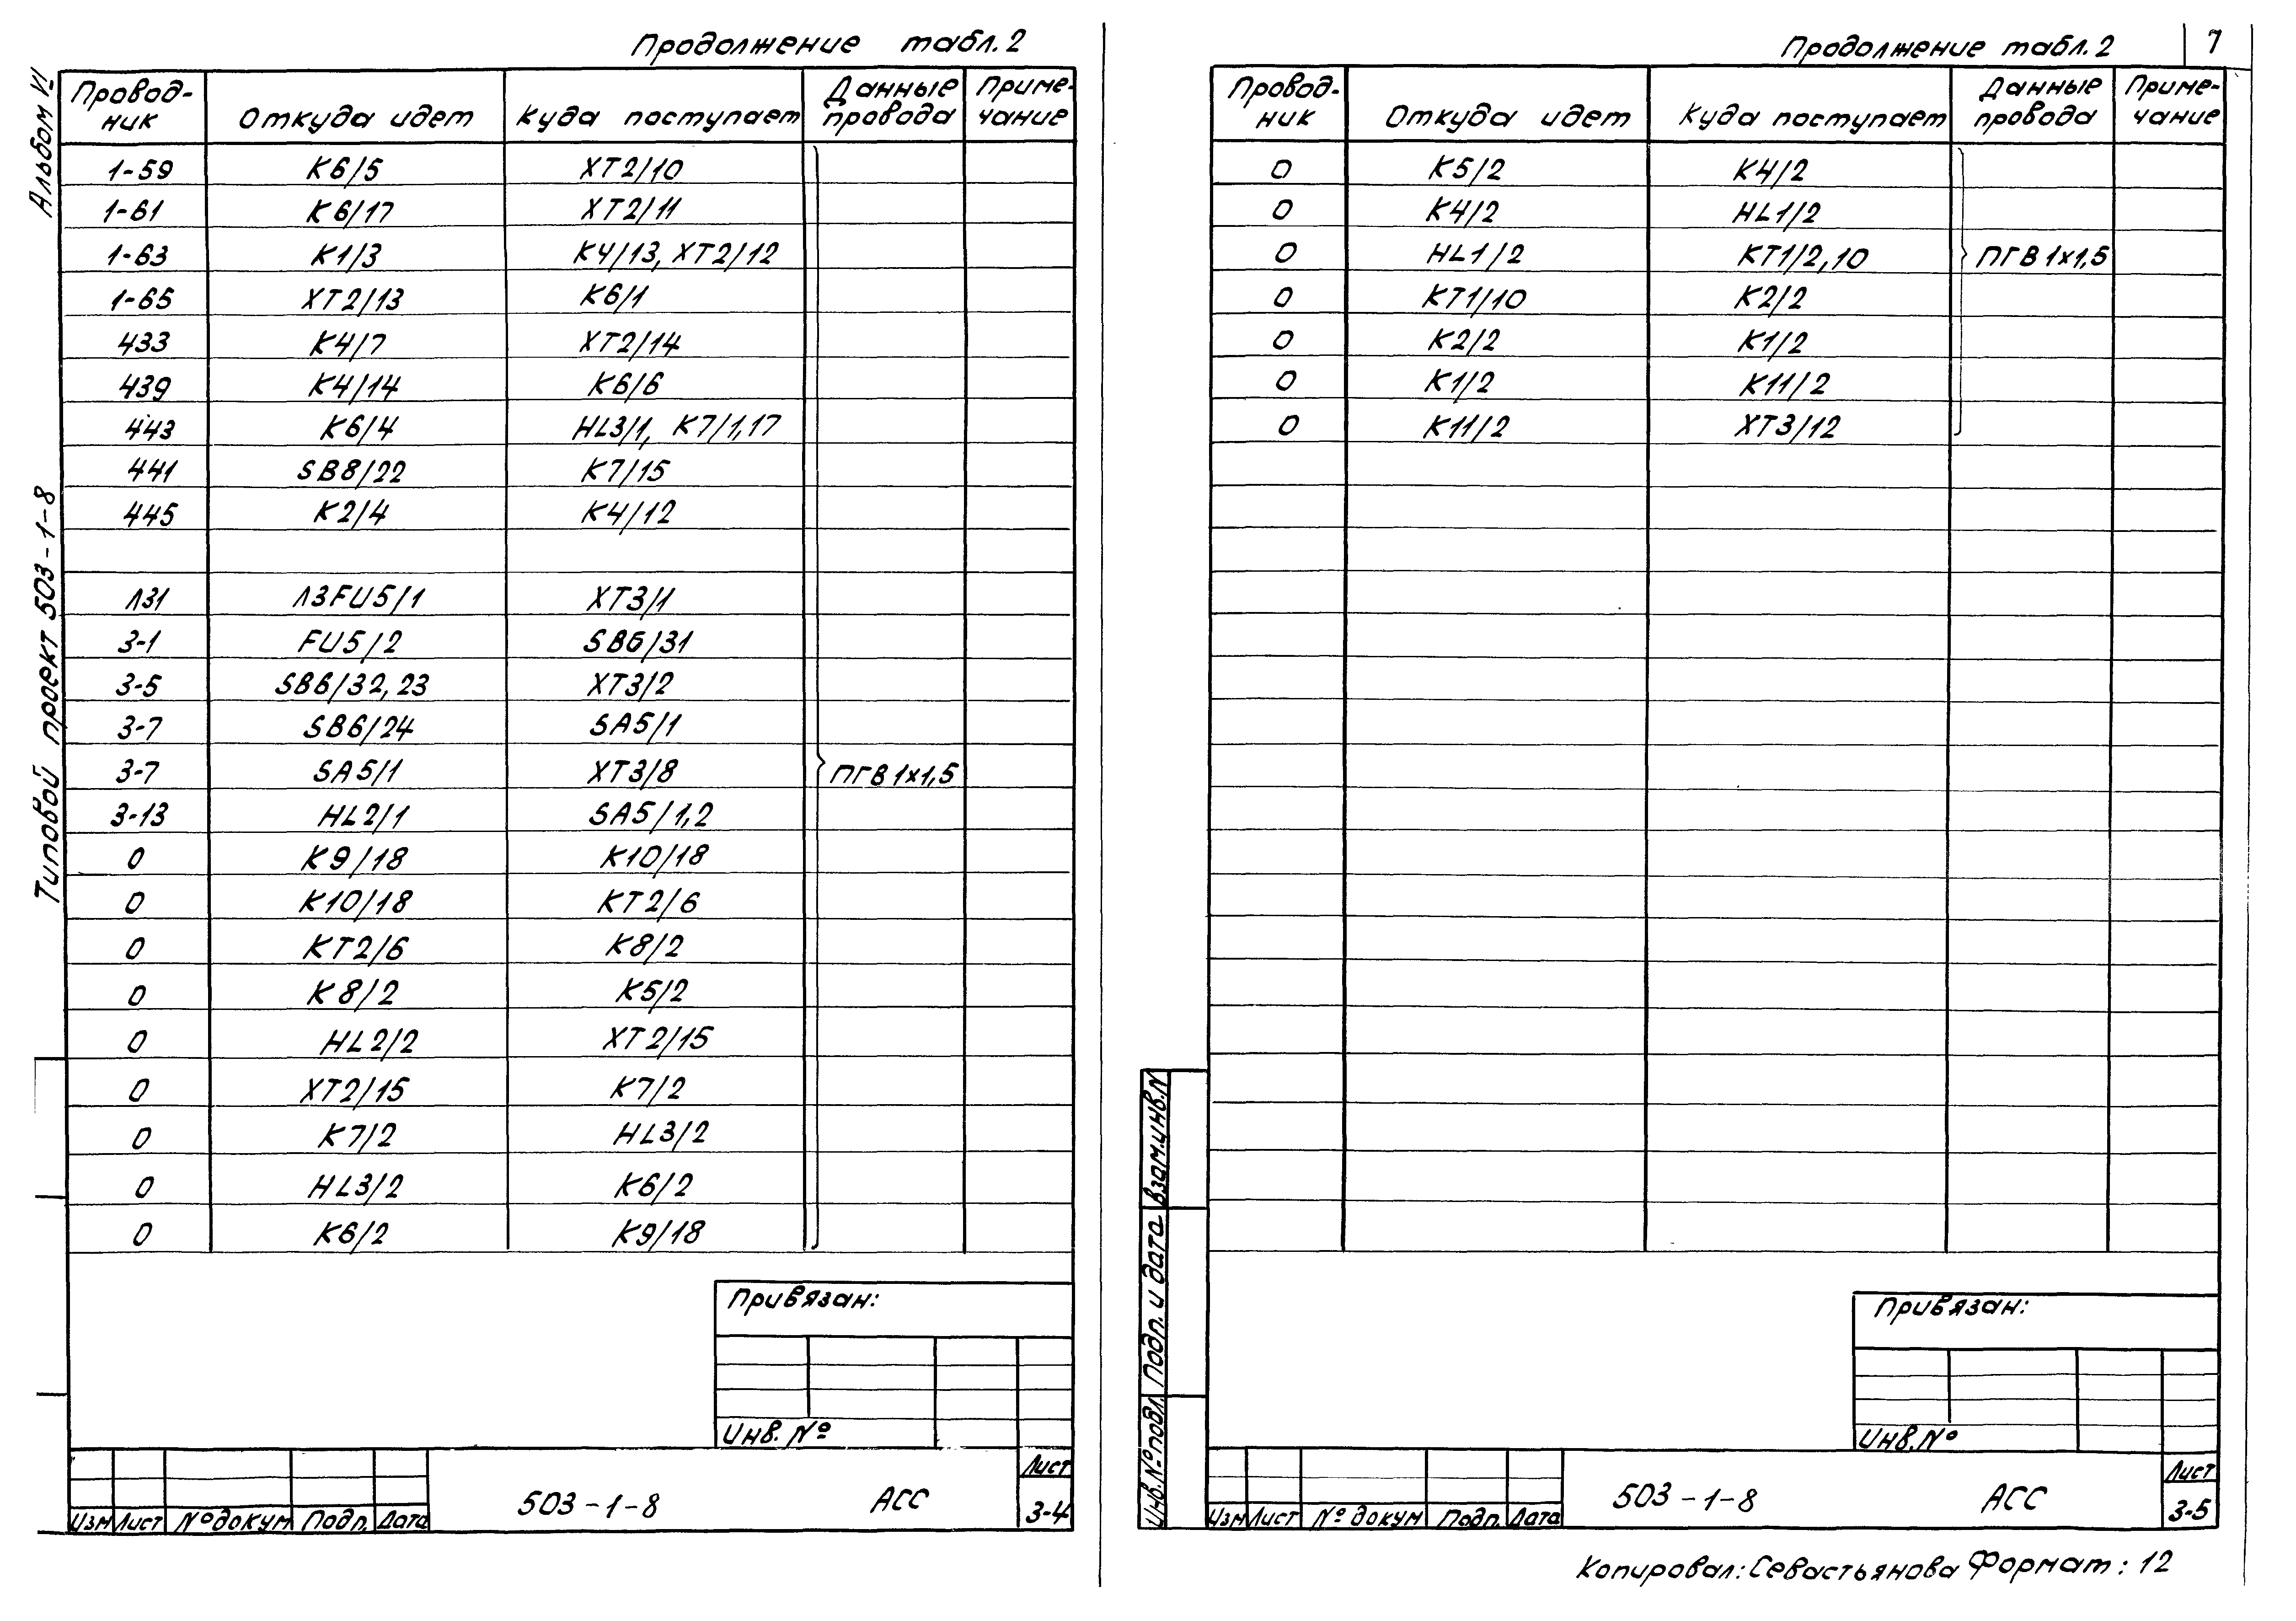 Альбом VI
Типовой проект 503-1-8
Продолжение табл. 2
Провод-ник Откуда идет Куда поступает Данные провода Приме-чание
1-59 К6/5 ХТ2/10
1-61 К6/17 ХТ2/11
1-63 К1/3 К4/13, ХТ2/12
1-65 ХТ2/13 К6/1
433 К4/7 ХТ2/14
439 К4/14 К6/6
443 К6/4 HL3/1, К7/1,17
441 SB8/22 К7/15
445 К2/4 К4/12
Л31 Л3FU5/1 ХТ3/1
3-1 FU5/2 SB6/31
3-5 SB6/32, 23 ХТ3/2
3-7 SB6/24 SA5/1
3-7 SA5/1 ХТ3/8 ПГВ 1х1,5
3-13 HL2/1 SA5/1,2
0 К9/18 К10/18
0 К10/18 КТ2/6
0 КТ2/6 К8/2
0 К8/2 К5/2
0 HL2/2 ХТ2/15
0 ХТ2/15 К7/2
0 К7/2 HL3/2
0 HL3/2 К6/2
0 К6/2 К9/18
Привязан:
Инв. №
Изм Лист № докум Подп. Дата
503-1-8 АСС
Лист
3-4
Продолжение табл. 2
7
Провод-ник Откуда идет Куда поступает Данные провода Приме-чание
0 К5/2 К4/2
0 К4/2 HL1/2
0 HL1/2 КТ1/2,10 ПГВ 1х1,5
0 КТ1/10 К2/2
0 К2/2 К1/2
0 К1/2 К11/2
0 К11/2 ХТ3/12
Взам.инв.N
Подп. и дата
Инв. № подл.
Привязан:
Инв. №
Изм Лист № докум Подп. Дата
503-1-8 АСС
Лист
3-5
Копировал: Севастьянова Формат: 12